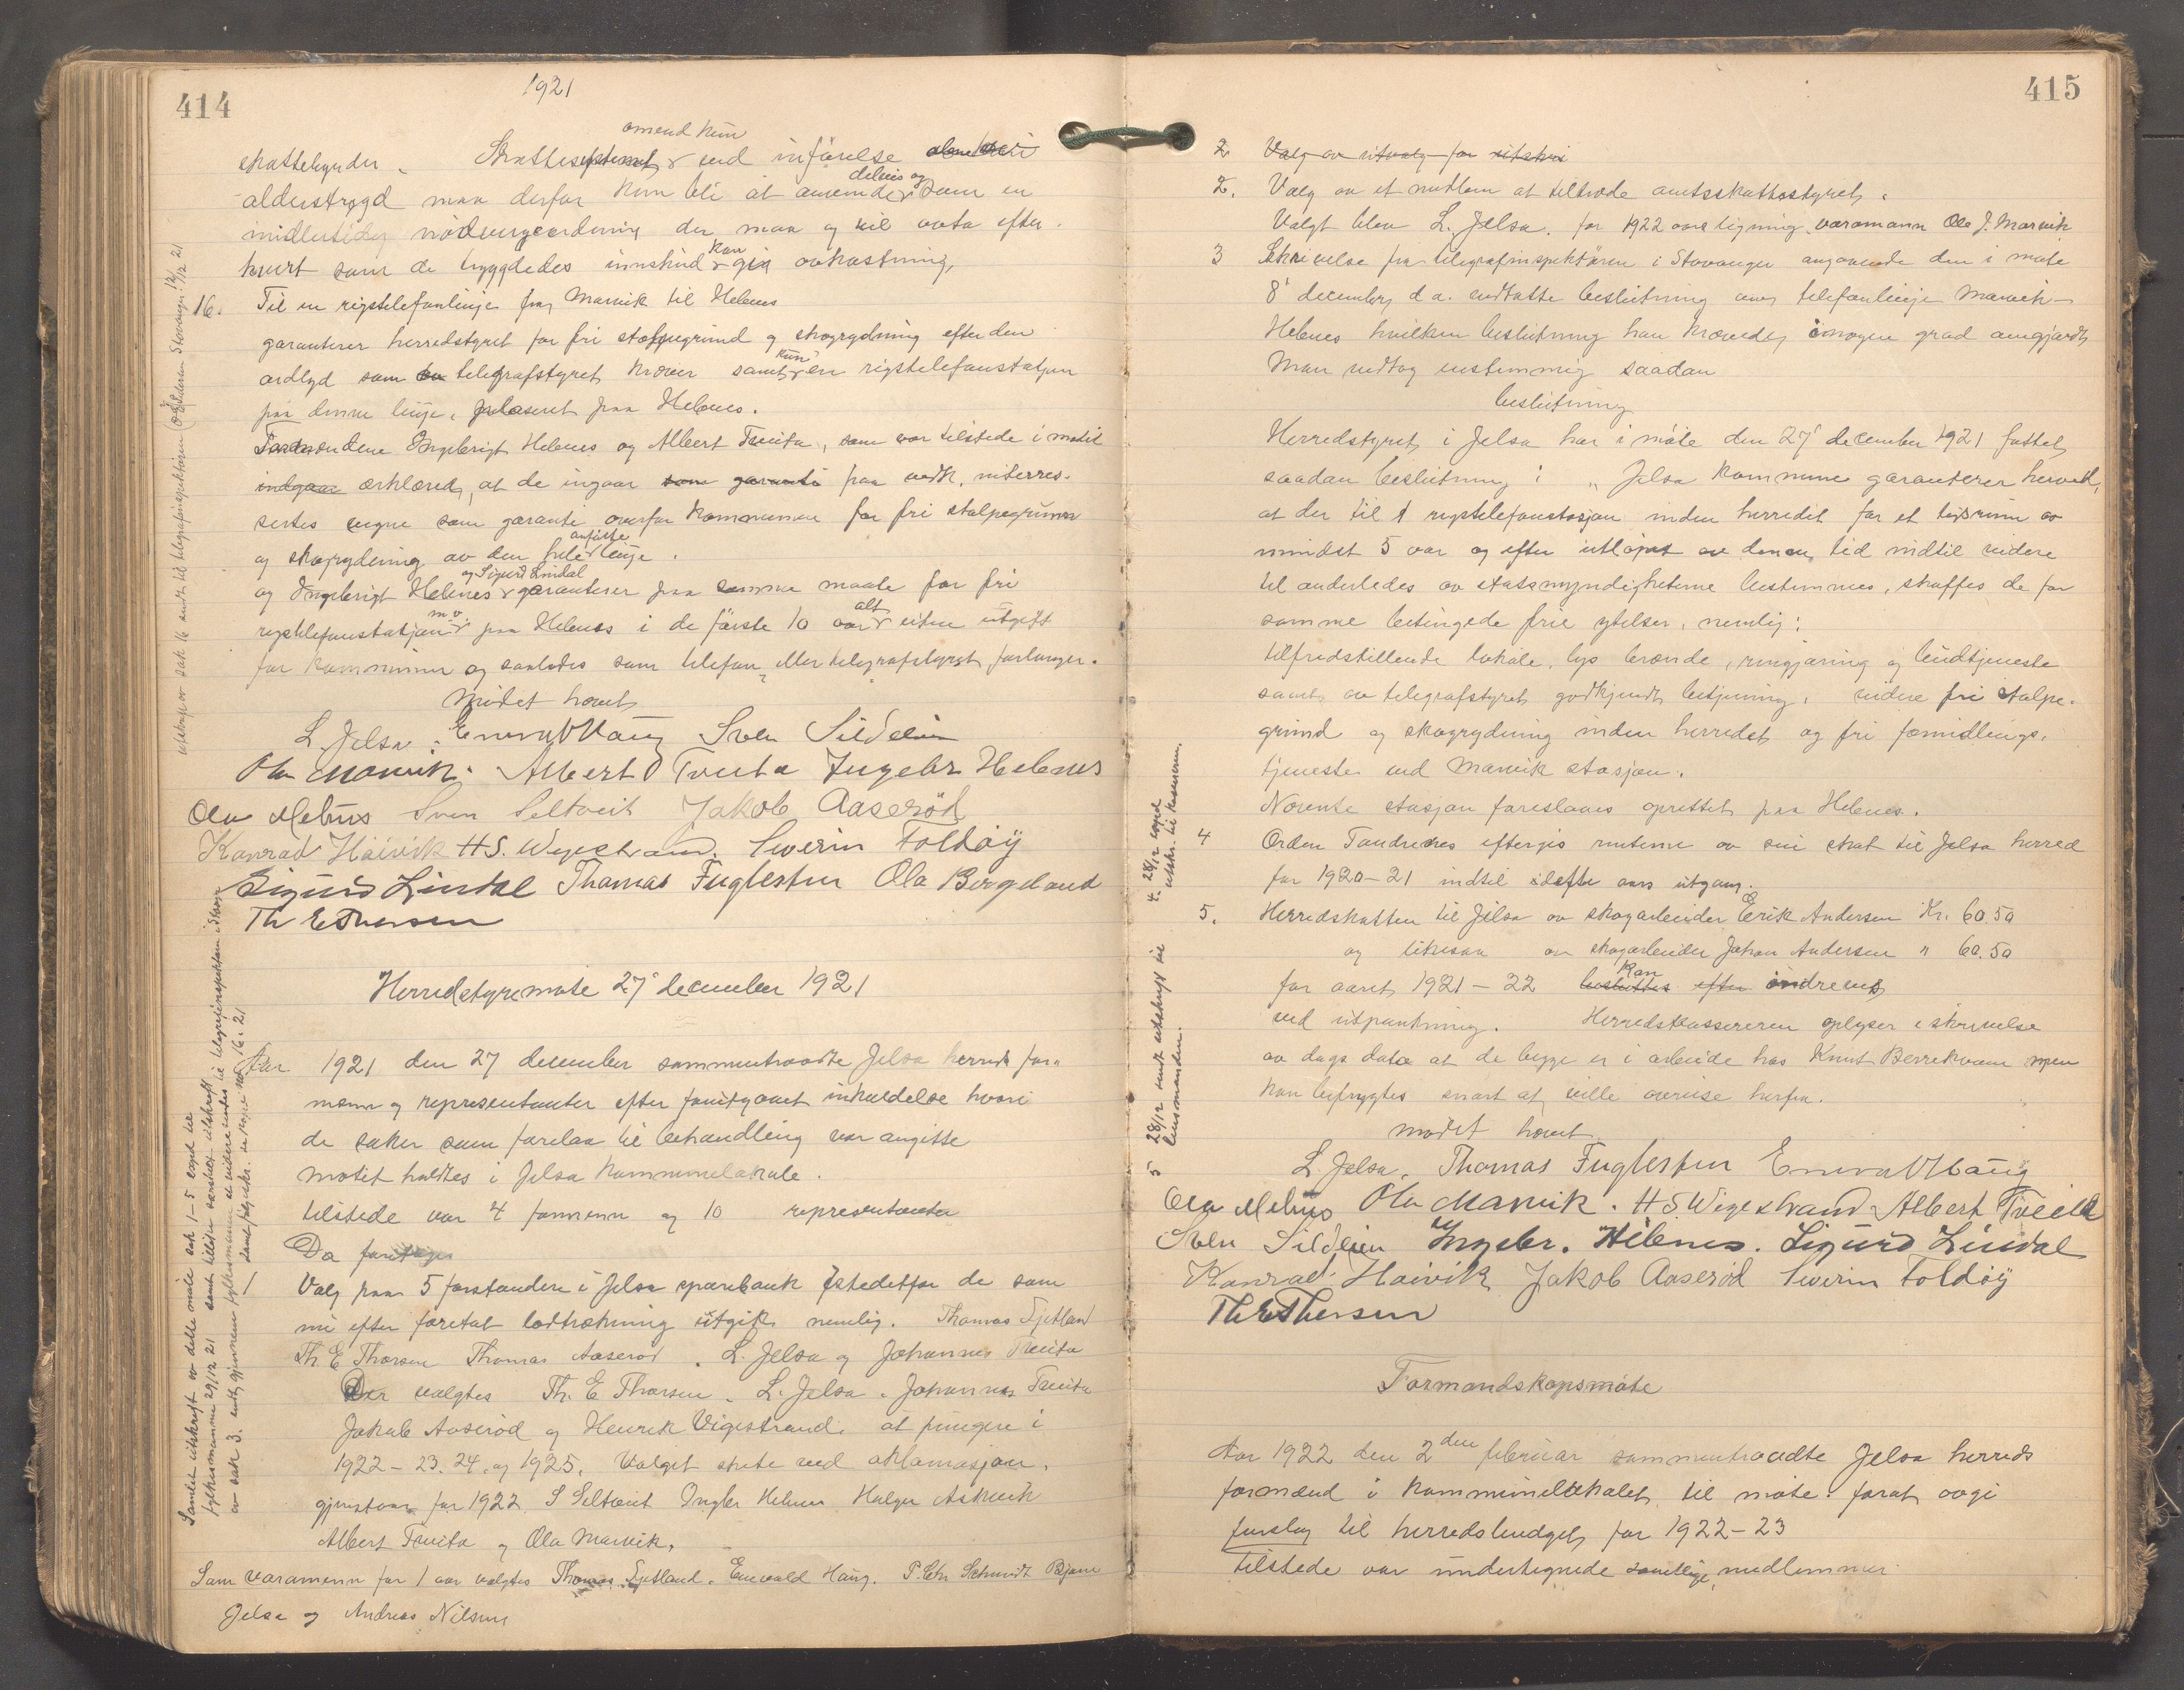 414
1921
omend kun
skattebyrder. Skattesystemet ved inførelse
delvis og
alderstrygd maa derfor kun bli at anvende som en
midlertidig nødvergeordning der maa og vil avta efter
kan
hvert som de byggdedes innskud gia avkastning.
16. Til en rigstelefonlinje fra Marvik til Hebnes
garanterer herredstyret for fri stolpegrund og skogrydning efter den
kun
ordlyd som telegrafstyret kræver samt en rigstelefonstasjon
paa denne linje, plaseret paa Hebnes.
Formændene Ingebrigt Hebnes og Albert Tveita, som var tilstede i møtet
indgaar erklæred, at de ingaar som garanti paa vedk. interres-
sertes vegne som garanti overfor kommunen for fri stolpegrunn
anførte
og skogrydning av den hele linje.
og Sigurd Lindal
og Ingebrigt Hebnes garanterer paa samme maate for fri
m.v. alt
rigstelefonstasjon paa Hebnes i de første 10 aar uten utgift
for kommunen og saaledes som telefon eller telegrafstyret forlanger.
Møtet hævet
L. Jelsa. Enevald Haug Sven Sildelien
Ola Marvik. Albert Tveita Ingebr Hebnes
Ola Mehus Sven Seltveit Jakob Aaserød
Konrad Høivik H S. Wigestrand. Severin Foldøy
Sigurd Lindal Thomas Fuglestein Ola Bergeland
Th E Thorsen
Herredstyremøte 27' december 1921
Aar 1921 den 27 december sammentraadte Jelsa herreds for-
mænn og representanter efter foutgaaet inkaldelse hvori
de saker som forelaa til behandling var angitte
møtet holdtes i Jelsa kommunelokale.
tilstede var 4 formenn og 10 representanter
Da foretoges
1 Valg paa 5 forstandere i Jelsa sparebank istedetfor de som
nu efter foretat lodtrækning utgik nemlig. Thomas Gjetland
Th E Thorsen Thomas Aaserød. L. Jelsa og Johannes Tveita
Der valgtes Th. E Thorsen. L. Jelsa. Johannes Tveita
Jakob Aaserød og Henrik Vigestrand. at fungere i
1922 – 23. 24. og 1925. Valget skete ved aklamasjon.
gjenstaar for 1922 S Seltveit Ingbr Hebnes Holger Askvik
Albert Tveita og Ola Marvik.
Som varamenn for 1 aar valgtes Thomas Gjetland. Enevald Haug. P. Chr Schmidt Bjarne
Jelsa og Andreas Nilsen
utskrift av sak 16 sendt til telegrafinspektøren Stavanger 12/12 21
Samlet utskrift av dette møte sak 1–5 exped til
fylkesmannen 29/12 21 samt tillike særskilt utskrift
av sak 3. endt gjennem fylkesmannen at videre sendes til telegrafinspektøren Stavgr
415
2 Valg av utvalg for
2. Valg av et medlem at tiltræde amtsskattestyret.
Valgt blev L. Jelsa. for 1922 aars ligning. varamann Ola J. Marvik
3 Skrivelse fra telegrafinspektøren i Stavanger angaaende den i møte
8' december d a. vedtatte beslutning ang telefonlinje Marvik –
Hebnes hvilken beslutning han krævedes i nogen grad omgjordt
Man vedtog enstemmig saadan
beslutning
Herredstyret i Jelsa har i møte den 27' december 1921 fattet
saadan beslutning: „Jelsa kommune garanterer herved,
at der til 1 rigstelefonstasjon inden herredet for et tidsrum av
mindst 5 aar og efter utløpet av denne tid indtil videre
til anderledes av statsmyndigheterne bestemmes, skaffes de for
samme betingede frie ytelser, nemlig:
tilfredstillende lokale, lys brænde, rengjøring og budtjeneste
samt av telegrafstyret godkjendt betjening, videre fri stolpe-
grund og skogrydning inden herredet og fri formidlings-
tjeneste ved Marvik stasjon.
Nævnte stasjon foreslaaes oprettet paa Hebnes.
4 Orden Tandrenes eftergis renterne av sin skat til Jelsa herred
for 1920–21 indtil idette aars utgang.
5. Herredskatten til Jelsa av skogarbeider Erik Andersen Kr. 60.50
og likesaa av skogarbeider Johan Andersen " 60.50
kan
for aaret 1921 – 22 besluttes efter inndreves
ved utpantning. Herredskassereren oplyser i skrivelse
av dags dato at de begge er i arbeide hos Knut Berrekvam men
kan befrygtes snart at ville avreise herfra.
møtet hævet
L. Jelsa. Thomas Fuglestein Enevald Haug
Ola Mehus Ola Marvik. H S Wigestrand Albert Tveita
Sven Sildelien Ingebr. Hebnes. Sigurd Lindal
Konrad Høivik Jakob Aaserød Severin Foldøy
Th E Thorsen
4. 28/12 exped
utskr. til kassereren.
5 28/12 sendt utskrift til
lensmanden.
Formandskapsmøte
Aar 1922 den 2den februar sammentraadte Jelsa herreds
formænd i kommunelokalet til møte forat avgi
forslag til herredsbudget for 1922–23
Tilstede var undertegnede samtlige medlemmer